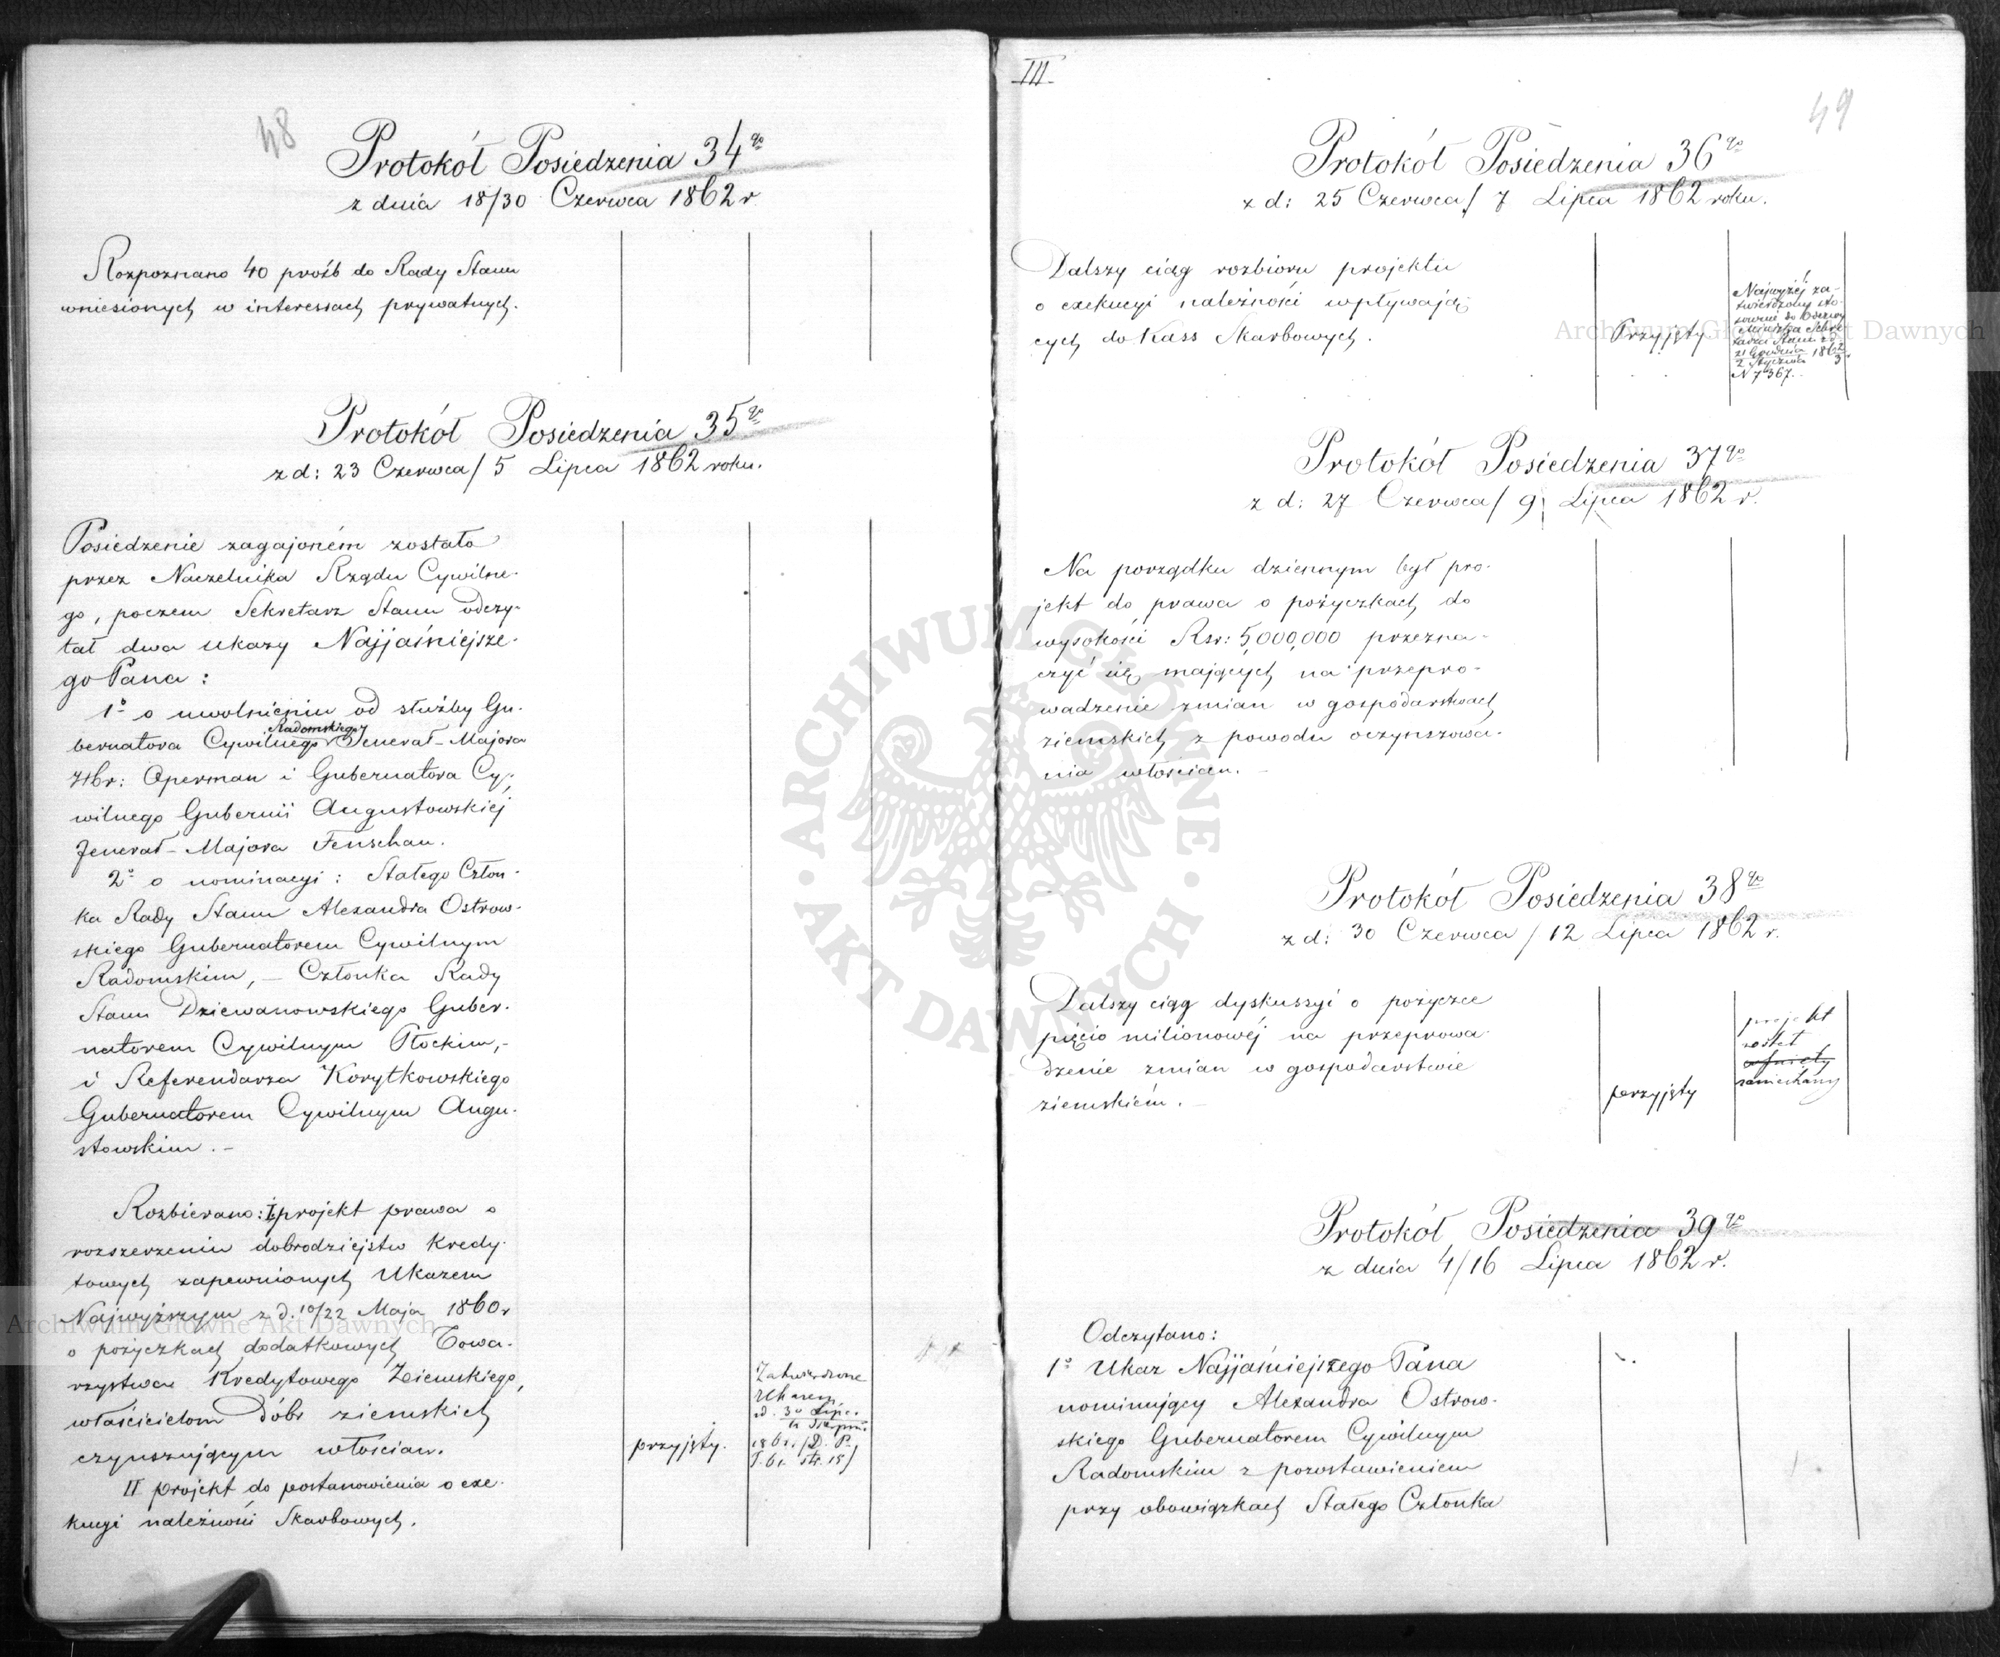 48
Protokół Posiedzenia 34go
z dnia 18/30 Czerwca 1862 r
Rozpoznano 40 próśb do Rady Stanu
wniesionych w interessach prywatnych.
Protokół Posiedzenia 35go
z d: 23 Czerwca / 5 Lipca 1862 roku.
Posiedzenie zagajoném zostało
przez Naczelnika Rządu Cywilne-
go, poczem Sekretarz Stanu odczy-
tał dwa Ukazy Najjaśniejsze-
go Pana:
1o o uwolnieniu od służby Gu-
bernatora Cywilnego Radomskiego Jenerał-Majora
Opperman i Gubernatora Cy-
wilnego Gubernii Augustowskiéj
Jenerał-Majora Fenschau.
2o o nominacyi: Stałego Człon-
ka Rady Stanu Alexandra Ostrow-
skiego Gubernatorem Cywilnym
Radomskim, – Członka Rady
Stanu Dziewanowskiego Guber-
natorem Cywilnym Płockim, –
i Referendarza Korytkowskiego
Gubernatorem Cywilnym Augu-
stowskim. –
Rozbierano: I projekt prawa o
rozszerzeniu dobrodziejstw Kredy-
towych zapewnionych Ukazem
Najwyższym z d. 10/22 Maja 1860 r
o pożyczkach dodatkowych Towa-
rzystwa Kredytowego Ziemskiego,
właścicielom dóbr ziemskich
czynszującym włościan.
przyjęty.
Zatwierdzone
Ukazem
d. 30 Lipca
186. (D. P.
T. 61. str. 15)
II projekt do postanowienia o exe-
kucyi należności Skarbowych.
III
49
Protokół Posiedzenia 36go
z d: 25 Czerwca / 7 Lipca 1862 roku.
Dalszy ciąg rozbioru projektu
o exekucyi należności wpływają-
cych do Kass Skarbowych.
Przyjęty
Najwyżéj za-
twierdzony sto-
sownie do Odezwy
Ministra Sekre-
tarza Stanu z d.
21 Grudnia / 2 Stycznia 1862/3
N 7367.
Protokół Posiedzenia 37go
z d: 27 Czerwca / 9 Lipca 1862 r.
Na porządku dziennym był pro-
jekt do prawa o pożyczkach do
wysokości Rsr: 5,000,000 przezna-
czyć się mających na przepro-
wadzenie zmian w gospodarstwach
ziemskich z powodu oczynszowa-
nia włościan. –
Protokół Posiedzenia 38go
z d: 30 Czerwca / 12 Lipca 1862 r.
Dalszy ciąg dyskussyi o pożyczce
pięcio milionowéj na przeprowa-
dzenie zmian w gospodarstwie
ziemskiém. –
przyjęty
projekt
został
cofnięty
zaniechany
Protokół Posiedzenia 39go
z dnia 4/16 Lipca 1862 r.
Odczytano:
1o Ukaz Najjaśniejszego Pana
nominujący Alexandra Ostrow-
skiego Gubernatorem Cywilnym
Radomskim z pozostawieniem
przy obowiązkach Stałego Członka
Archiwum Główne Akt Dawnych
Archiwum Główne Akt Dawnych
ARCHIWUM GŁÓWNE · AKT DAWNYCH ·